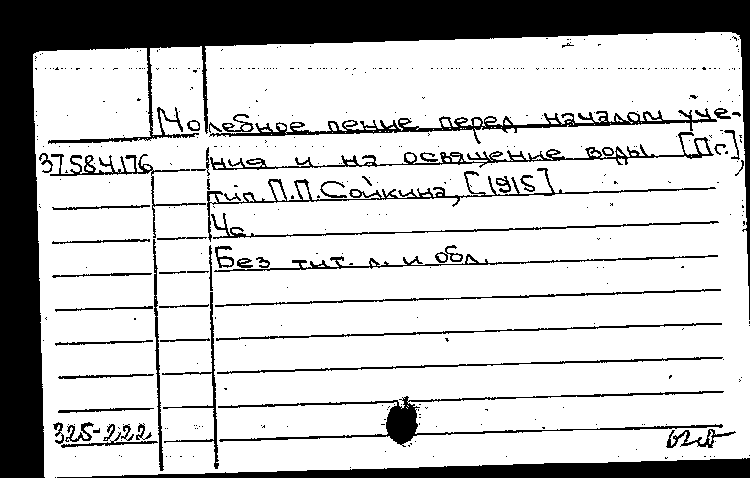 Молебное пение перед началом уче-
37.58.4.176 ния и на освящение воды. [Пг.]
тип. П.П. Сойкина, [1915].
4с.
Без тит. л. и обл.
325-222